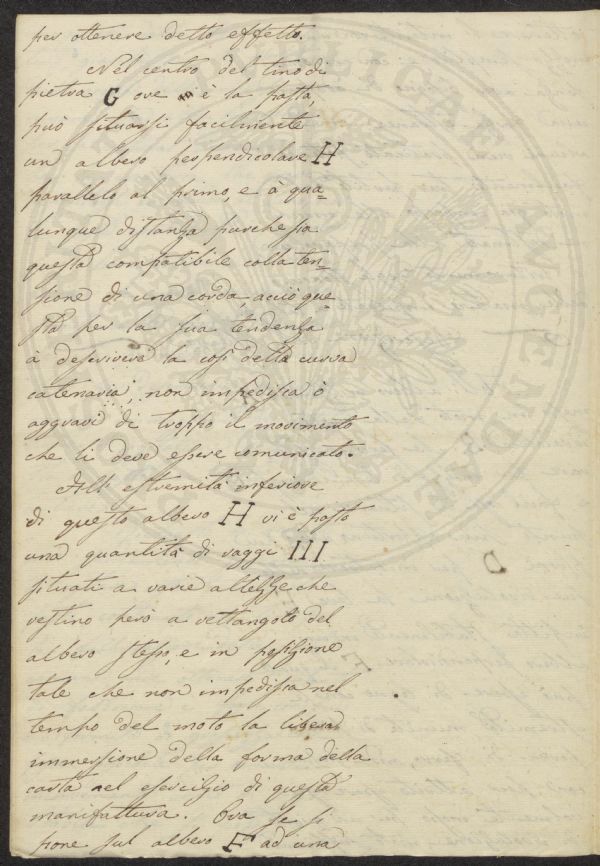 per ottenere detto effetto.
Nel centro del tino di
pietra G ove è la pasta,
può situarsi facilmente
un albero perpendicolare H
parallelo al primo, e à qua=
lunque distanza purche sia
questa compatibile colla ten=
sione di una corda, acciò que=
sta per la sua tendenza
à descrivere la così detta curva
catenaria, non impedisca ò
aggravi di troppo il movimento
che li deve essere comunicato.
All' estremità inferiore
di questo albero H vi è posto
una quantità di raggi III
situati a varie altezze che
restino però a rettangolo del
albero stesso, e in posizione
tale che non impedisca nel
tempo del moto la libera
immersione della forma della
carta nel esercizio di questa
manifattura. Ora se si
pone sul albero F ad una